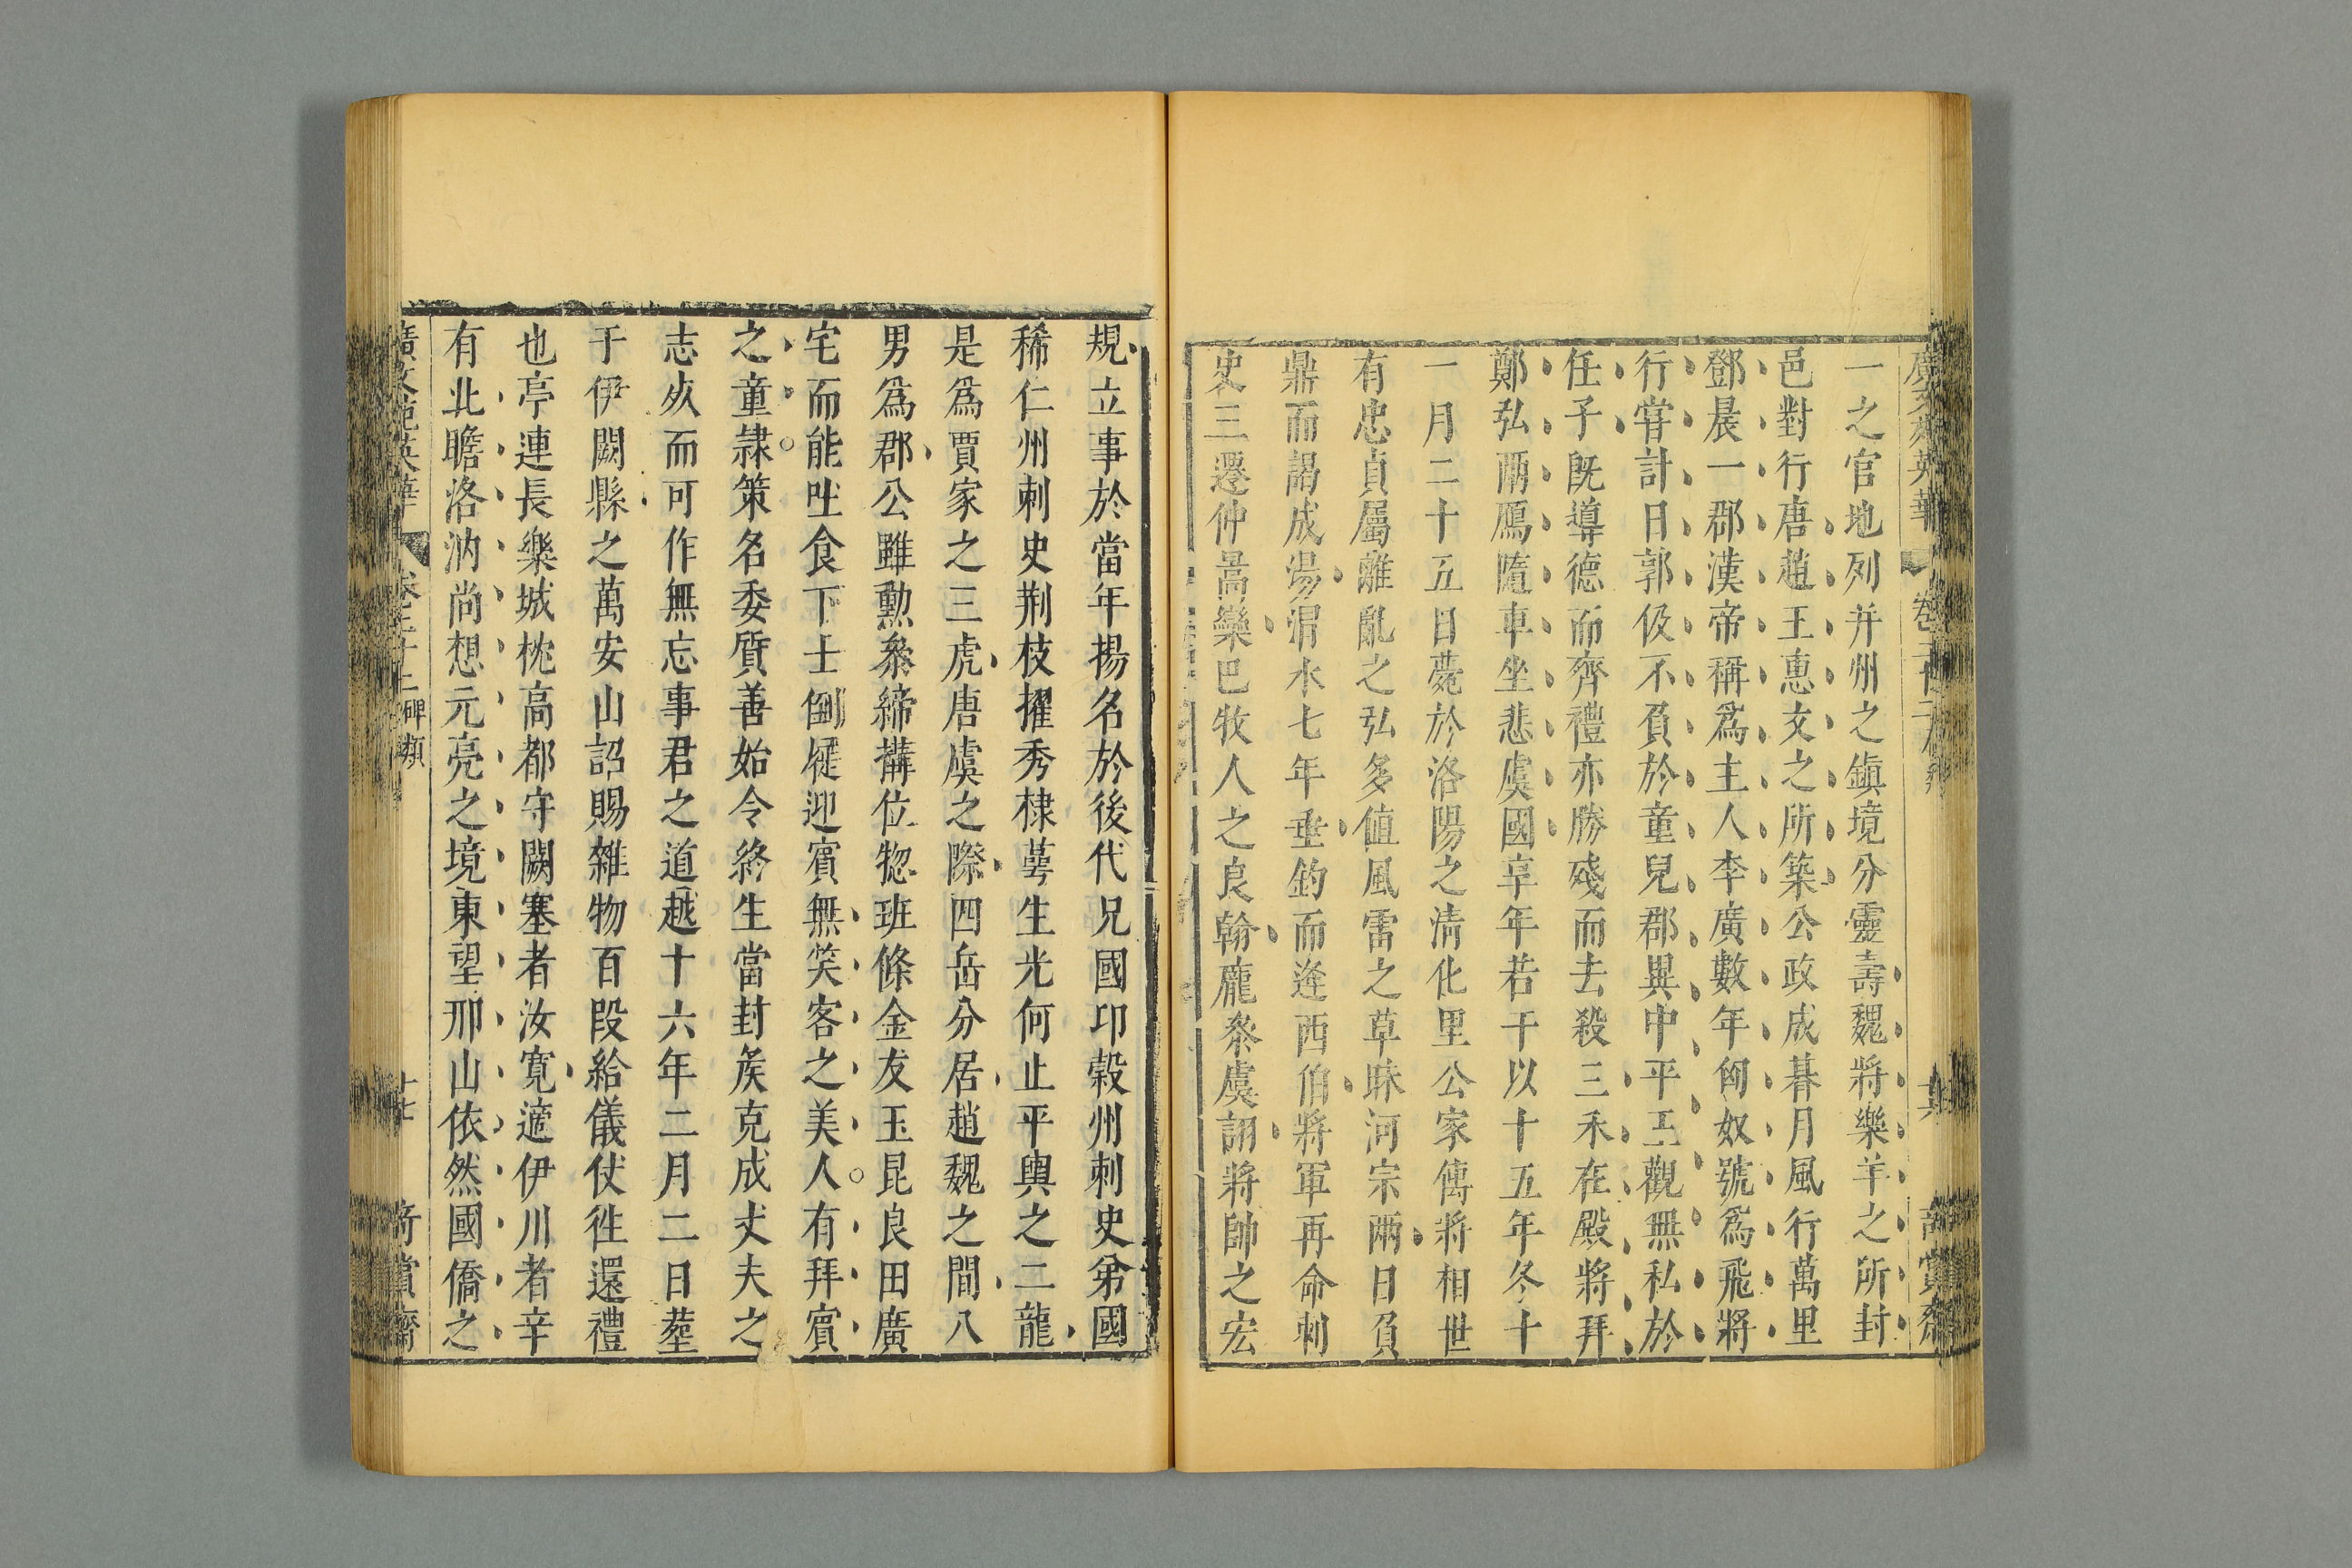 一之官地列并州之鎮境分靈壽魏將樂羊之所封
邑對行唐趙王惠文之所築公政成朞月風行萬里
鄧晨一郡漢帝稱爲主人李廣數年匈奴號爲飛將
行甞計日郭伋不負於童兒郡異中平王觀無私於
任子既導德而齊禮亦勝殘而去殺三禾在殿將拜
鄭弘兩鴈隨車坐悲虞國享年若干以十五年冬十
一月二十五日薨於洛陽之清化里公家傳將相世
有忠貞屬離亂之弘多值風雷之草昧河宗兩日負
鼎而謁成湯渭水七年垂釣而逢西伯將軍再命刺
史三遷仲暠欒巴牧人之良翰龐叅虞詡將帥之宏
規立事於當年揚名於後代兄國印榖州刺史弟國
稀仁州刺史荆枝擢秀棣蕚生光何止平輿之二龍
是爲賈家之三虎唐虞之際四岳分居趙魏之間八
男爲郡公雖勲叅締搆位惣班條金友玉昆良田廣
宅而能吐食下士倒屣迎賓無笑客之美人有拜賓
之童隸策名委質善始令終生當封矦克成丈夫之
志歿而可作無忘事君之道越十六年二月二日塟
于伊闕縣之萬安山詔賜雜物百段給儀仗徃還禮
也亭連長樂城枕高都守闕塞者汝寛適伊川者辛
有北瞻洛汭尚想元亮之境東望邢山依然國僑之
廣文苑英華 碑類 十七 奇賞齋